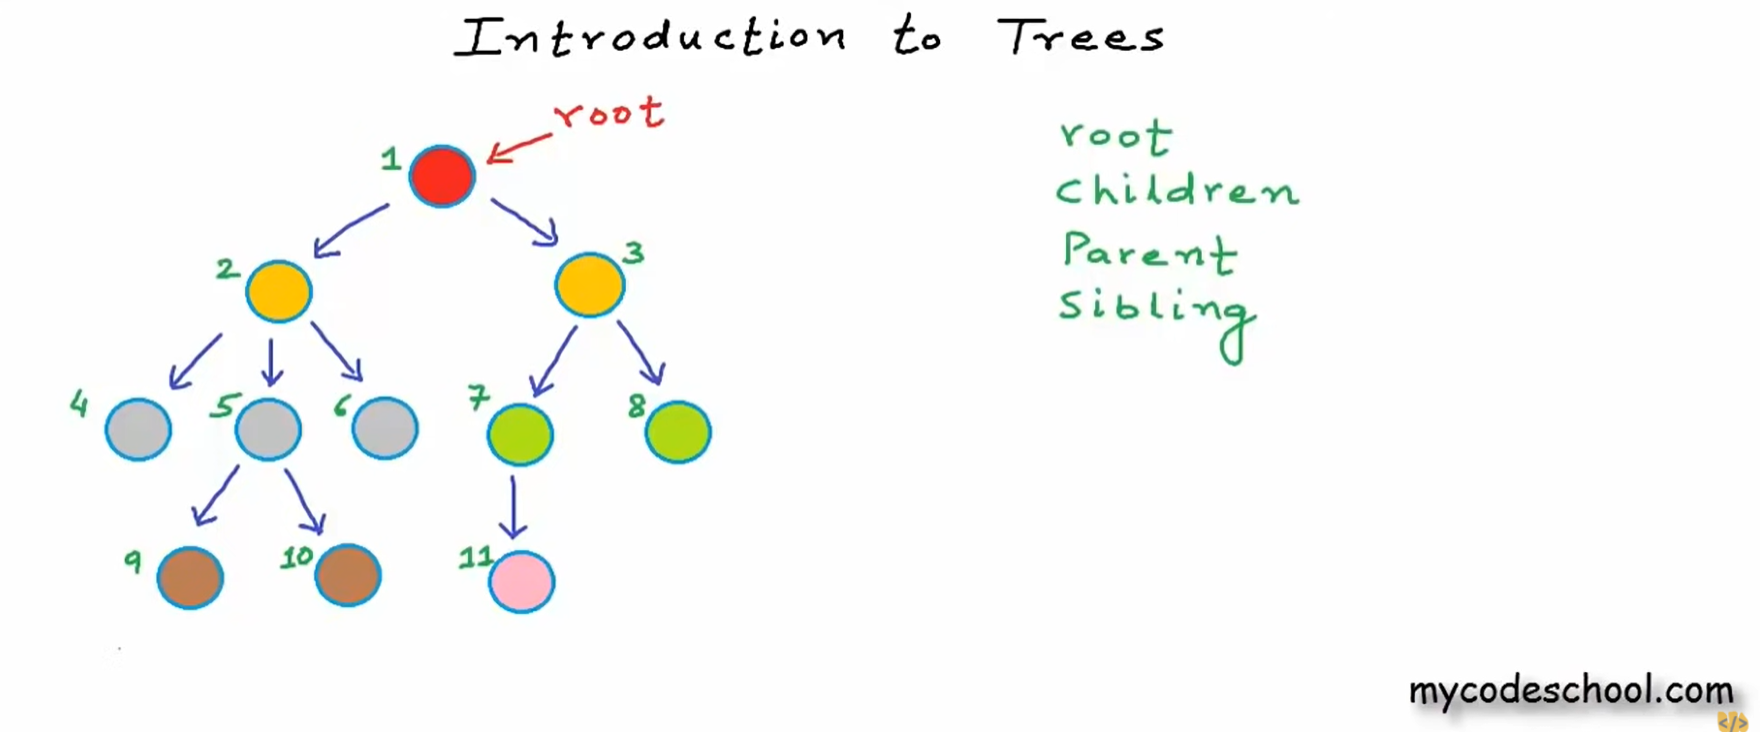 Introduction to Trees
root
1
2
3
4
5
6
7
8
9
10
11
root
Children
Parent
Sibling
mycodeschool.com
</>